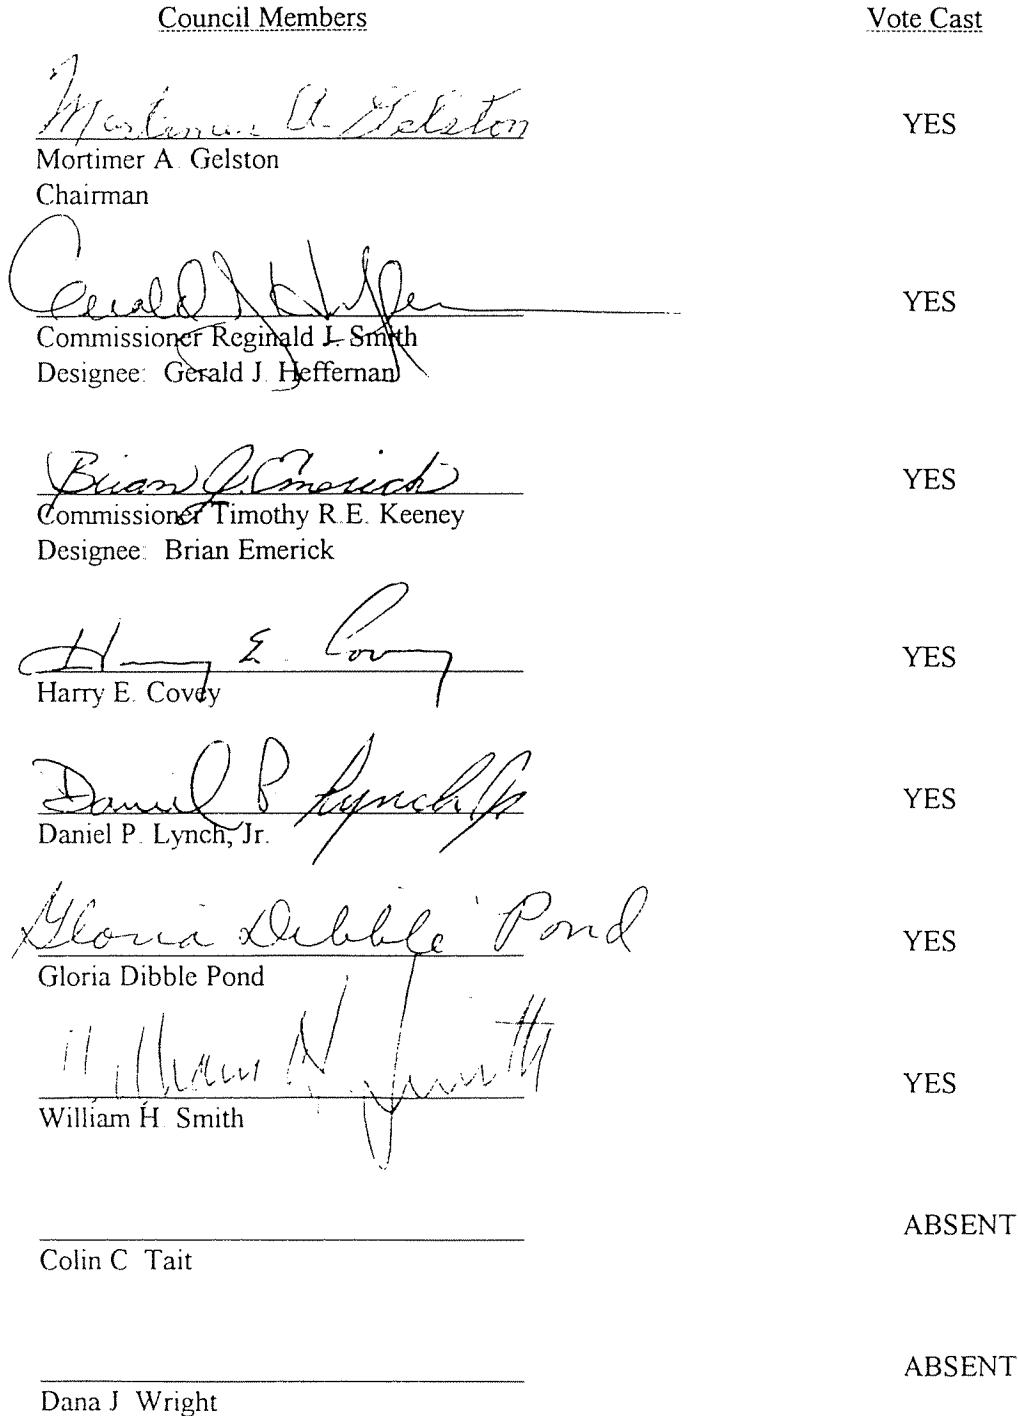 Council Members Vote Cast
Mortimer A. Gelston YES
Mortimer A. Gelston
Chairman
Gerald J. Heffernan YES
Commissioner Reginald J. Smith
Designee: Gerald J. Heffernan
Brian J. Emerick YES
Commissioner Timothy R.E. Keeney
Designee: Brian Emerick
Harry E. Covey YES
Harry E. Covey
Daniel P Lynch Jr YES
Daniel P. Lynch, Jr.
Gloria Dibble Pond YES
Gloria Dibble Pond
William H. Smith YES
William H. Smith
ABSENT
Colin C Tait
ABSENT
Dana J Wright